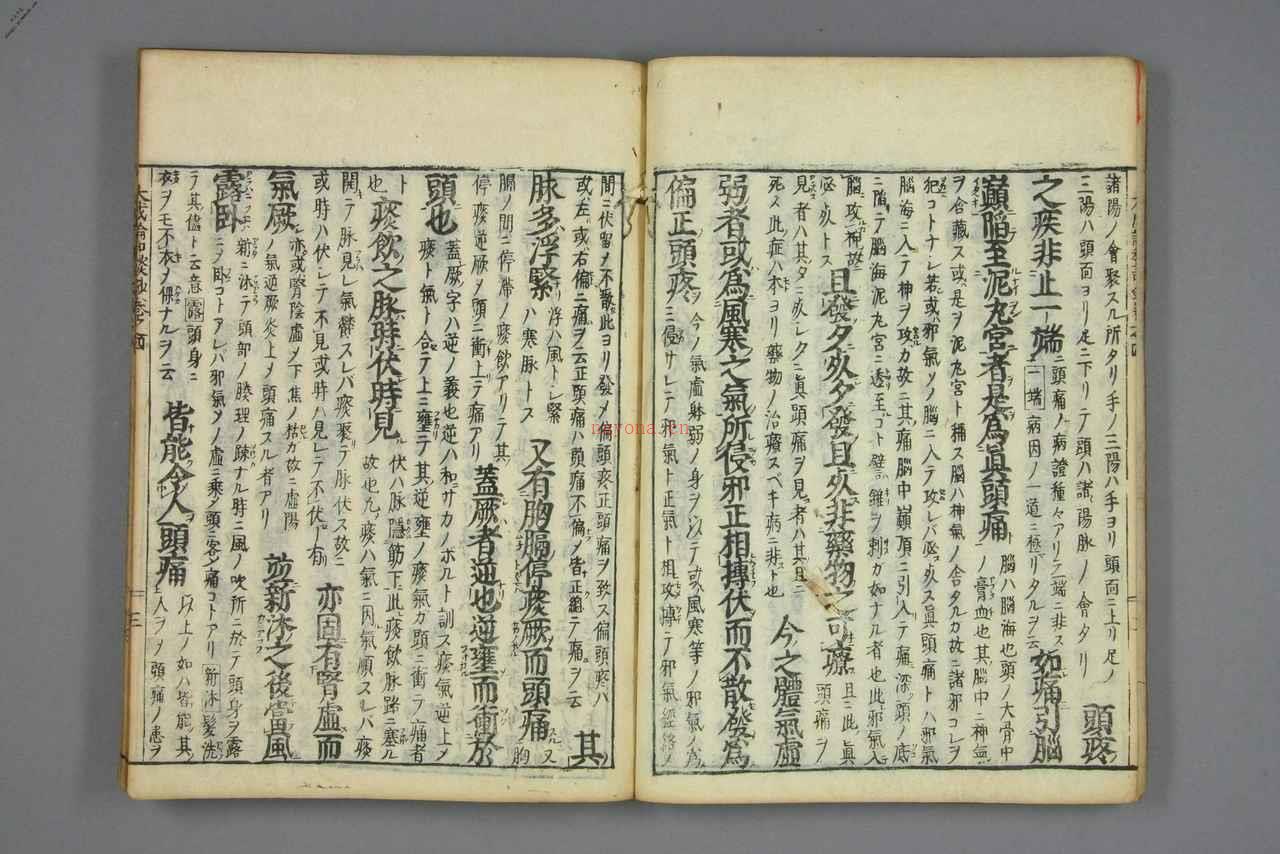 諸陽ノ會聚スル所タリ手ノ三陽ハ手ヨリ頭面ニ上リ足ノ
三陽ハ頭面ヨリ足ニ下リテ頭ハ諸陽脉ノ會タリ 頭疼
之疾非止一端 一端 病因ノ一道ニ極リタルヲ云
ニ頭痛ノ病證種々アリテ一端ニ非ス 如痛引腦
巔陷至泥丸宮者是爲眞頭痛 腦ハ腦海也頭ノ大骨中
ノ膏血也其腦中ニ神氣
ヲ含藏ス或ハ是ヲ泥丸宮ト稱ス腦ハ神氣ノ舍タルカ故ニ諸邪コレヲ
犯コトナシ若或ハ邪氣ソノ腦ニ入テ攻レバ必ス死ス眞頭痛トハ邪氣
腦海ニ入テ神ヲ攻カ故ニ其痛腦中巓頂ニ引入テ痛深ク頭ノ底
ニ陷テ腦海泥丸宮ニ透至コト譬ハ錐ヲ刺カ如ナル者也此邪氣入
腦攻神故
必死トス 且發夕死夕發且死非藥物之可療 且ニ此眞
頭痛ヲ
見者ハ其夕ニ死レ夕ニ眞頭痛ヲ見者ハ其且ニ
死ス此症ハ本ヨリ藥物ノ治療スベキ病ニ非ト也 今之體氣虛
弱者或爲風寒之氣所侵邪正相摶伏而不散發爲
偏正頭疼 今ノ氣虛躰弱ノ身ヲ以テ或風寒等ノ邪氣ノ爲
ニ侵サレテ邪氣ト正氣ト相攻摶テ邪氣經絡ノ
間ニ伏留メ不散此ヨリ發メ偏頭疼正頭痛ヲ致ス偏頭疼ハ
或ハ左或ハ右偏ニ痛ヲ云正頭痛ハ頭痛不偏メ皆正總テ痛ヲ云 其
脉多浮緊 浮ハ風トシ緊
ハ寒脉トス 又有胸膈停痰厥而頭痛 又
胸
膈ノ間ニ停滯ノ痰飲アリテ其
停痰逆厥メ頭ニ衝上テ痛アリ 蓋厥者逆也逆壅而衝於
頭也 蓋厥字ハ逆ノ義也逆ハ和サカノボルト訓ス痰氣逆上メ
痰ト氣ト合テ上ニ壅テ其逆壅ノ痰氣カ頭ニ衝テ痛者
ト
也 痰飲之脉時伏時見 伏ハ脉隱筋下此痰飲脉路ニ塞ル
故也凡痰ハ氣ニ因氣順スレバ痰
開テ脉見レ氣欝スレバ痰聚テ脉伏ス故ニ
或時ハ伏レテ不見或時ハ見レテ不伏ノ有 亦固有腎虛而
氣厥 亦或腎陰虛メ下焦ノ枯カ故ニ虛陽
ノ氣逆厥炎上メ頭痛スル者アリ 並新沐之後當風
露臥 新ニ沐テ頭部ノ腠理ノ踈ナル時ニ風ノ吹所ニ於テ頭身ヲ露
ニメ臥コトアレバ邪氣ソノ虛ニ乘メ頭ニ客メ痛コトアリ 新沐 髮洗
テ其儘ト云意 露 頭身ニ
衣ヲモ不衣ノ倮ナルヲ云 皆能令人頭痛 以上ノ如ハ皆能其
人ヲメ頭痛ノ患ヲ
大成論和談鈔卷之四
三
nayona.cn